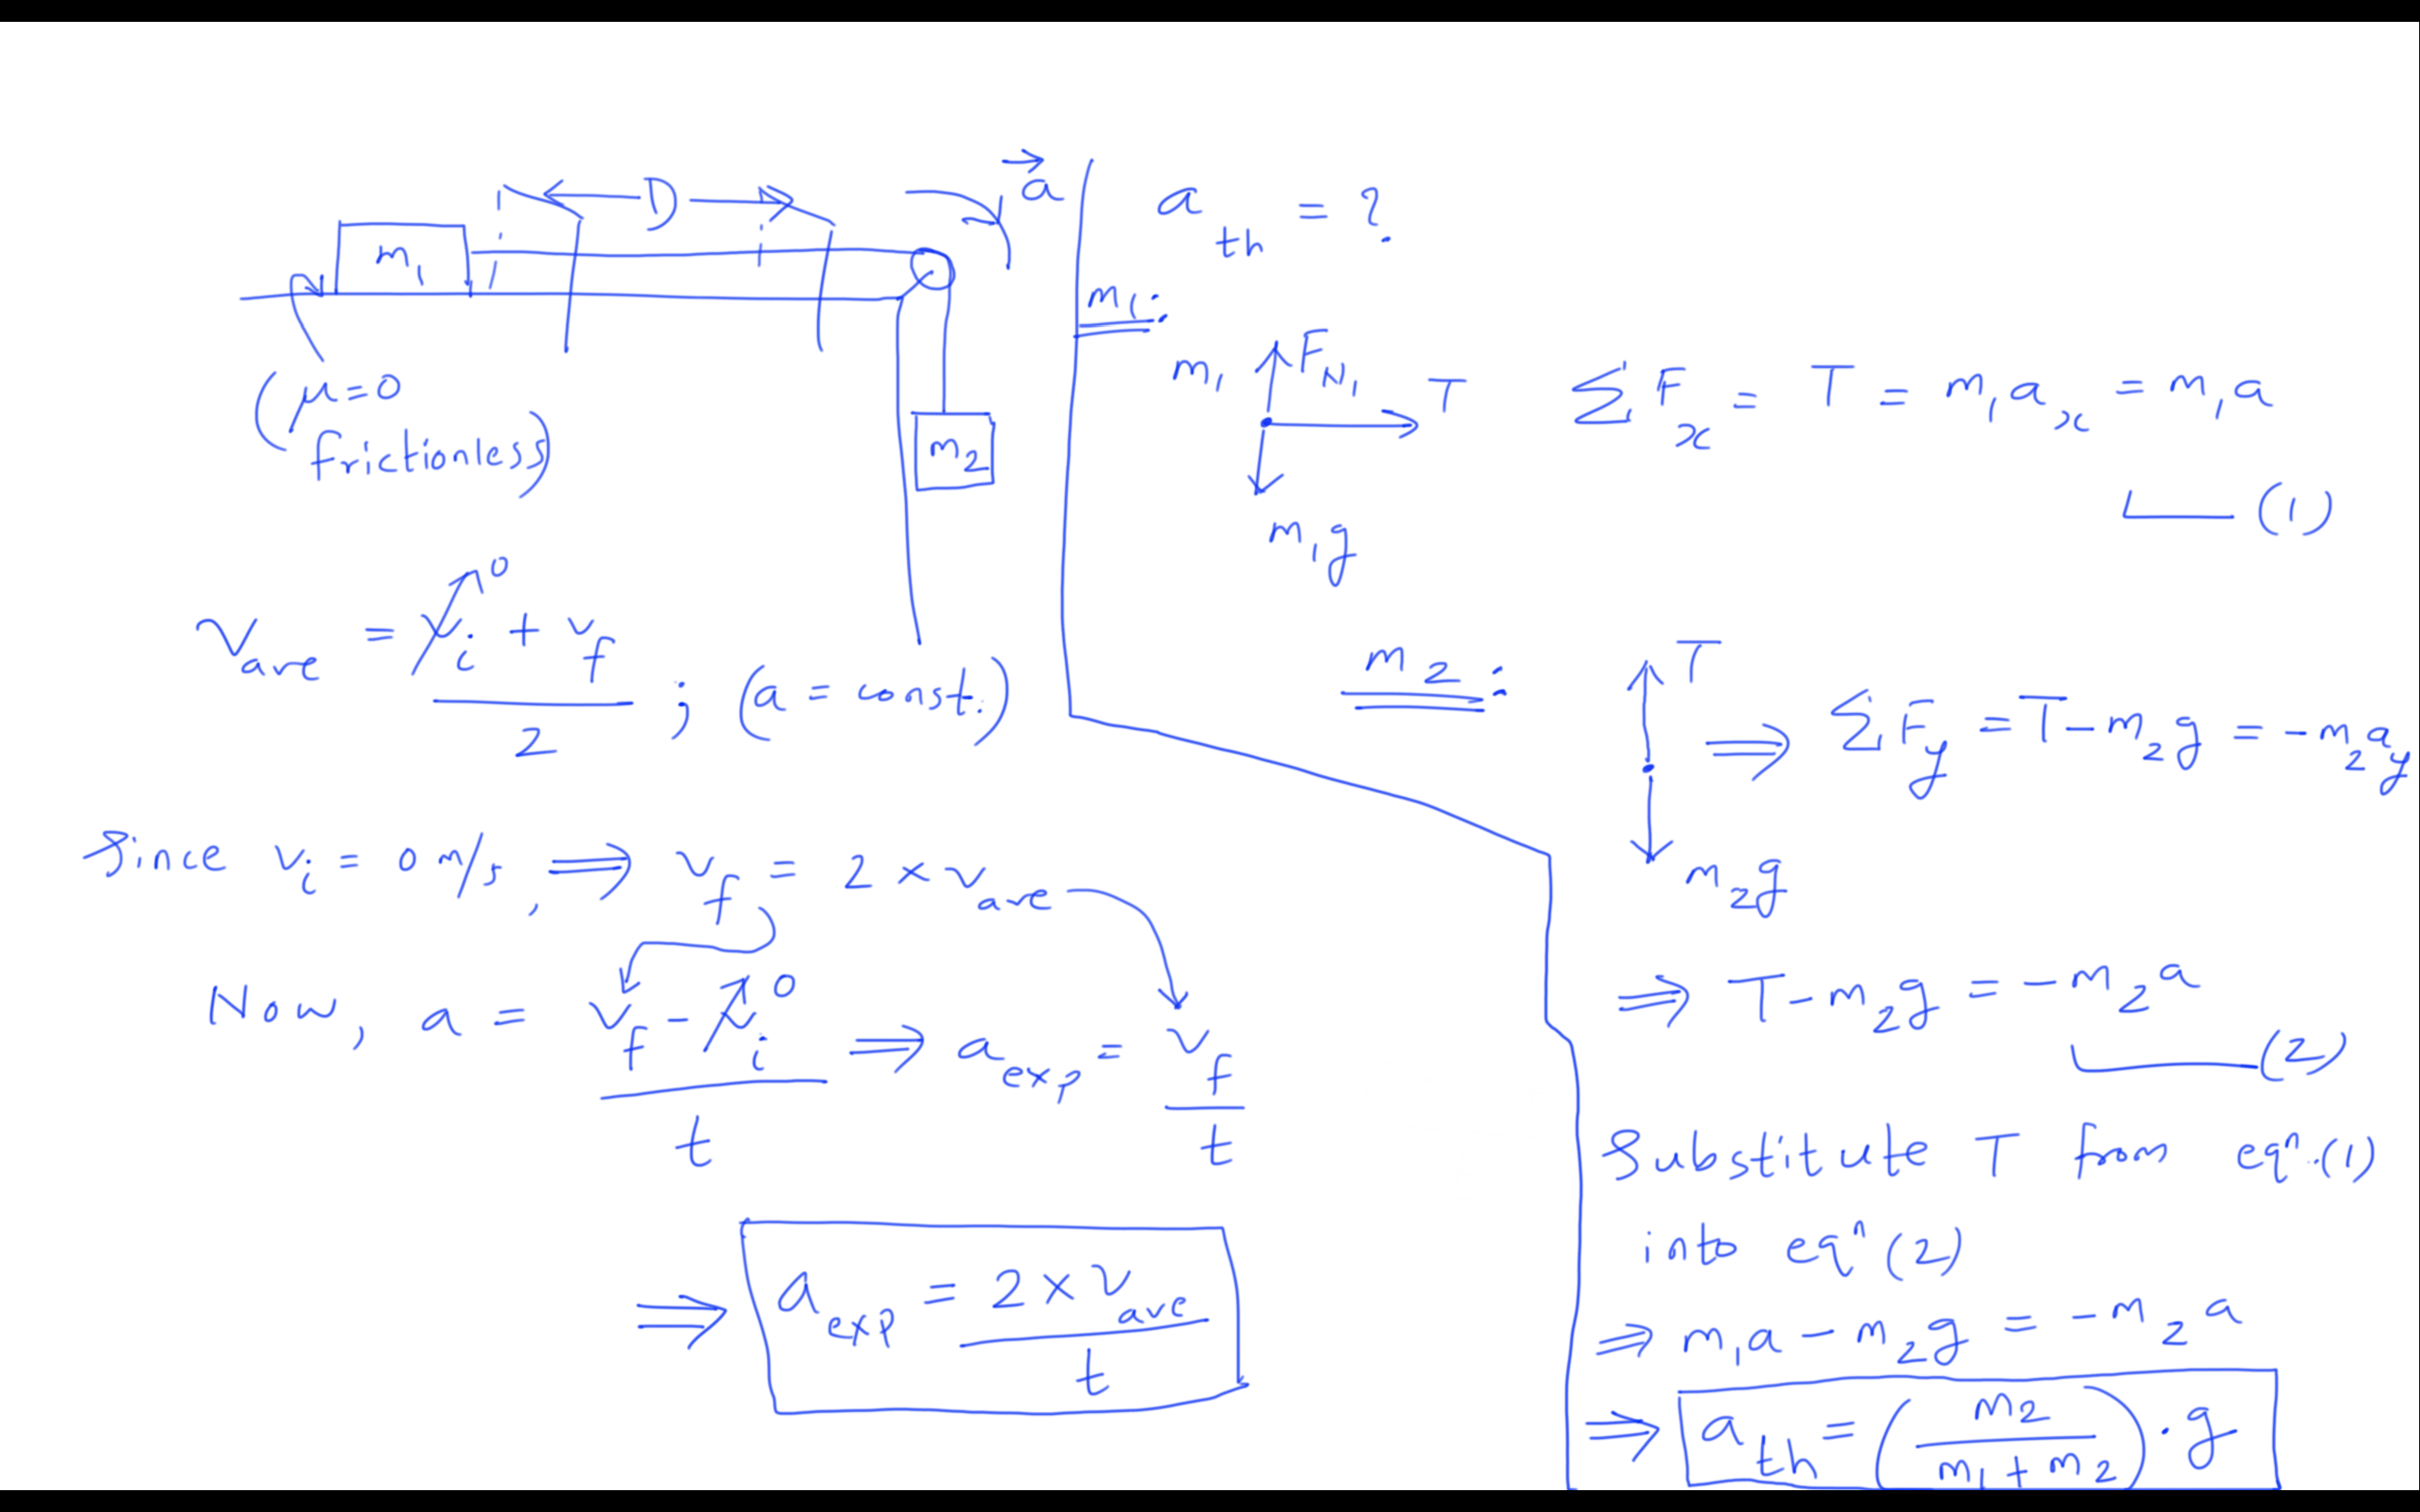 D
a⃗
m₁
(μ=0
frictionless)
m₂
v_ave = (v_i→0 + v_f)/2 ; (a = const.)
Since v_i = 0 m/s, ⇒ v_f = 2 × v_ave
Now, a = (v_f − v_i→0)/t ⇒ a_exp = v_f/t
⇒ a_exp = (2 × v_ave)/t
a_th = ?
m₁:
m₁ F_N₁ T ΣF_x = T = m₁a_x = m₁a
(1)
m₁g
m₂:
T
⇒ ΣF_y = T − m₂g = −m₂a_y
m₂g
⇒ T − m₂g = −m₂a
(2)
Substitute T from eqⁿ.(1)
into eqⁿ (2)
⇒ m₁a − m₂g = −m₂a
⇒ a_th = (m₂/(m₁+m₂)) · g